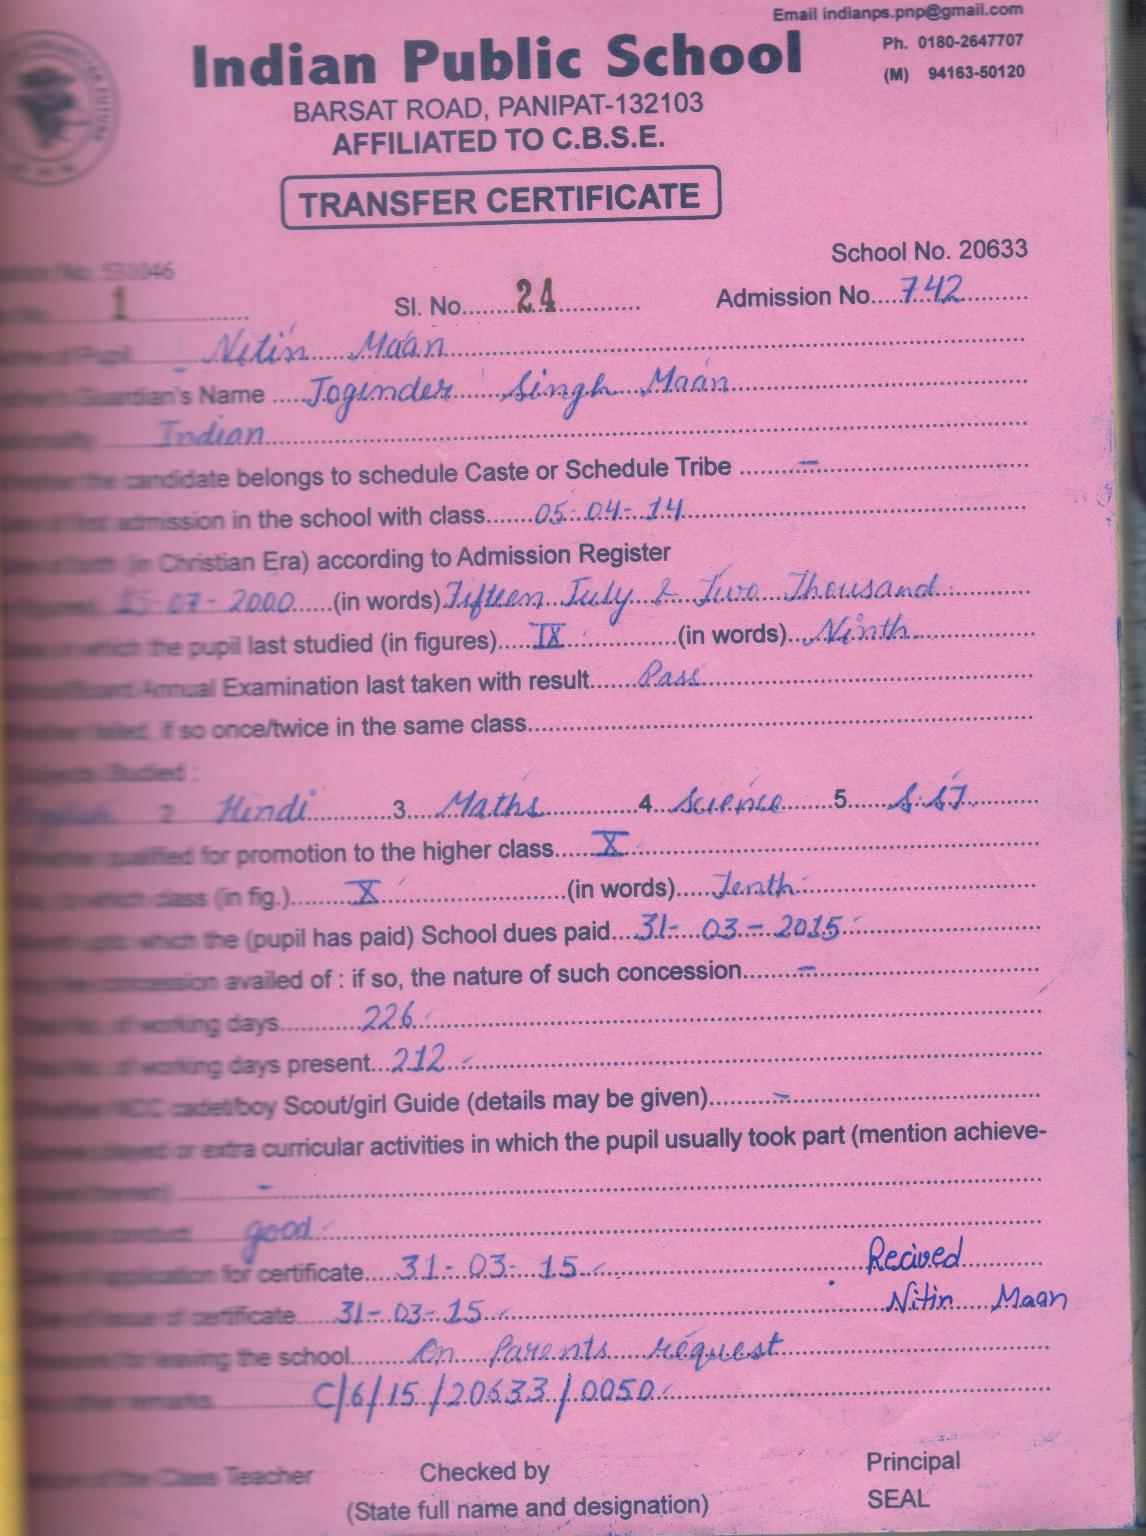 Email indianps.pnp@gmail.com
Indian Public School
Ph. 0180-2647707
(M) 94163-50120
BARSAT ROAD, PANIPAT-132103
AFFILIATED TO C.B.S.E.
TRANSFER CERTIFICATE
School No. 20633
No. 530046
1 Sl. No. 24 Admission No. 742
of Pupil Nitin Maan
Guardian's Name Joginder Singh Maan
Indian
the candidate belongs to schedule Caste or Schedule Tribe -
of first admission in the school with class 05-04-14
of birth (in Christian Era) according to Admission Register
15-07-2000 (in words) Fifteen July & Two Thousand
in which the pupil last studied (in figures) IX (in words) Ninth
Annual Examination last taken with result Pass
failed, if so once/twice in the same class
Subjects Studied :
2 Hindi 3. Maths 4 Science 5. S.ST.
qualified for promotion to the higher class X
which class (in fig.) X (in words) Tenth
upto which the (pupil has paid) School dues paid 31-03-2015
concession availed of : if so, the nature of such concession -
No. of working days 226
No. of working days present 212
NCC cadet/boy Scout/girl Guide (details may be given) -
played or extra curricular activities in which the pupil usually took part (mention achieve-
-
conduct good
application for certificate 31-03-15
of issue of certificate 31-03-15
Recived
Nitin Maan
for leaving the school On Parents request
remarks C/6/15/20633/0050
of the Class Teacher Checked by Principal
(State full name and designation) SEAL